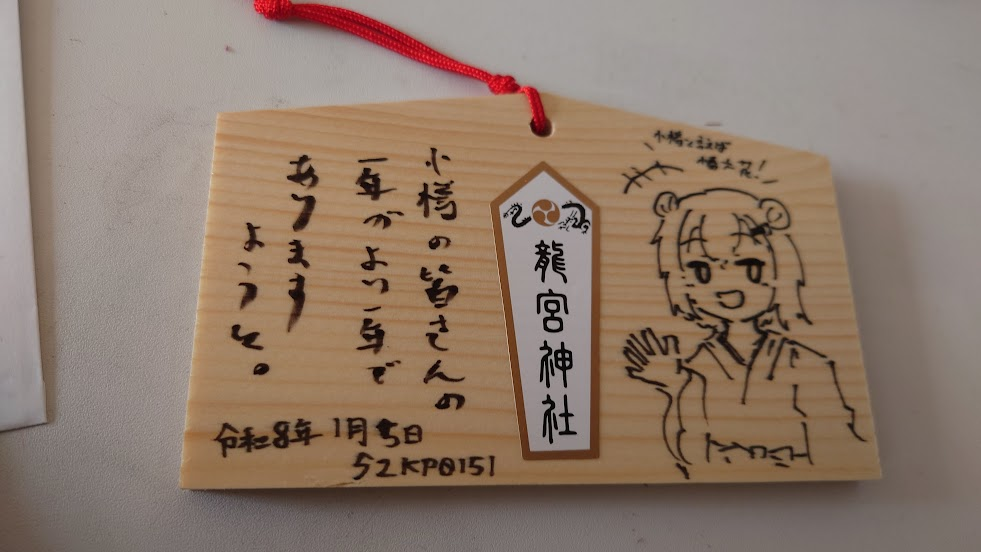 小樽と言えば
小樽の皆さんの
一年がよい一年で
あります
ようそ。
龍宮神社
令和8年1月5日
S2KP0151